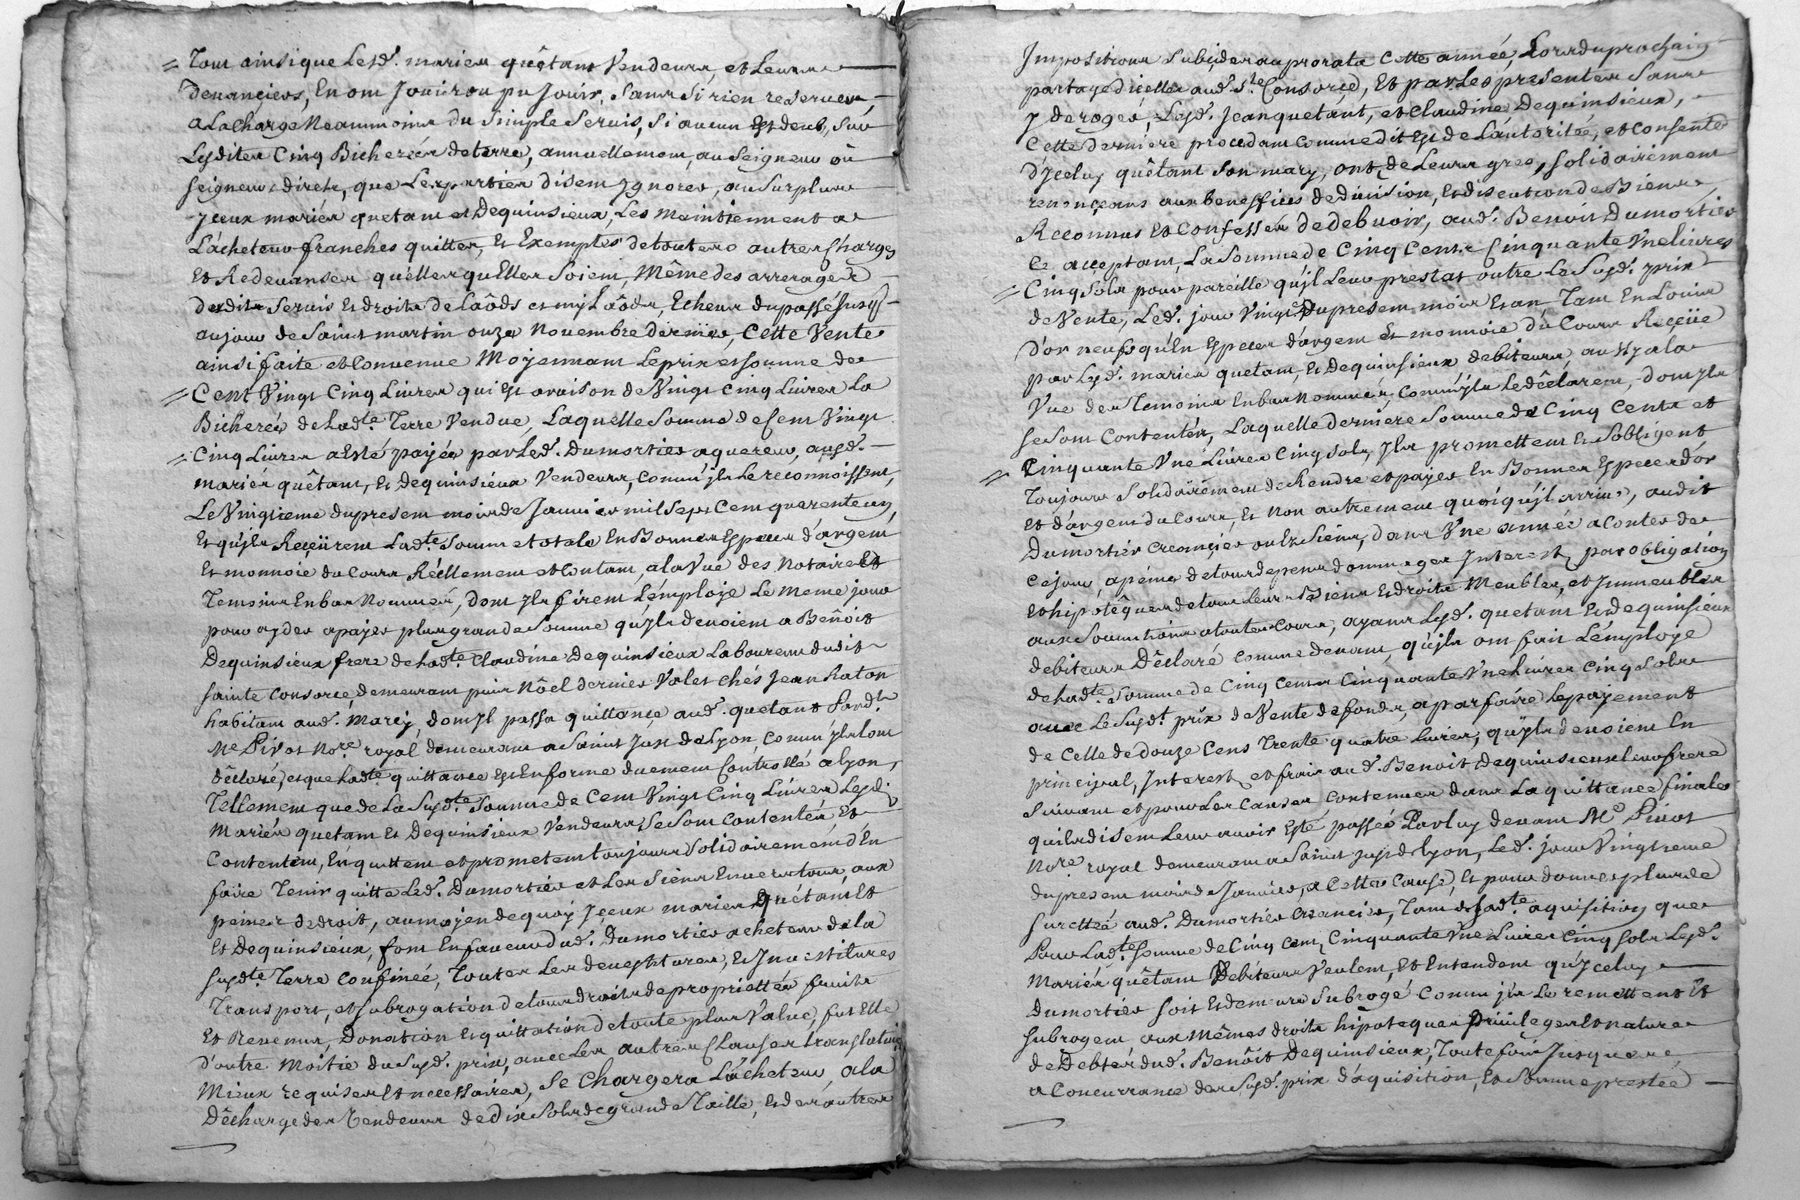 = Tout ainsi que Lesd. mariés quêtant Vendeurs, et Leurs
devanciers, En ont Joui, ou pu Jouir, Sans Si rien reserver,
a La charge Neammoins du Simple Servis, Si aucun Est deub, Sur
Lesdites Cinq Bicherées de terre, annuellement, au Seigneur où
seigneurs directs, que Les parties disent Ignorer, au Surplus
Iceux mariés quetant et Dequinsieux, Les Maintiennent a
L'acheteur franches quittes, Et Exemptes de toutes autres Charges
Et Redevanses quelles qu'Elles Soient, Même des arrerages
desdits Servis Et droits de Laôds et my Laôds, Echeus du passé Jusq
au jour de Saint martin onze Novembre dernier, Cette Vente
ainsi faite et Convenue Moyennant Le prix et somme de
= Cent Vingt Cinq Livres qui Est a raison de Vingt Cinq Livres La
Bicherée de Ladte. Terre Vendue, Laquelle Somme de Cent Vingt
= Cinq Livres a Esté payée par Led. Dumortier aquereur, ausd.
mariés quêtant, Et Dequinsieux Vendeurs, Comm'jls Le reconnoissent,
Le Vingtieme du present mois de Janvier mil Sept Cent quarente un,
Et qu'jls Reçûrent Ladte. Somme totale En Bonnes Especes d'argent
Et monnoie du Cours Réellement et Contant, a la Vue des Notaire Et
Temoins En bas Nommés, dont jls firent L'emploje Le meme jour
pour ayder a payer plus grande Somme qu'jls devoient a Benôit
Dequinsieux frere de Ladte. Claudine Dequinsieux Laboureur dudit
sainte Consorce demeurant puis Nôel dernier Valet chés Jean Raton
habitant aud. Marcy, dont jl passa quittance aud. quetant Pardt.
Me Pivot Nore. royal demeurant a Saint Just de Lyon, Comm'jls l'ont
dêclaré, et que Ladte. quittance Est En forme duement Controllé a Lyon,
Tellement que de La Susdte. Somme de Cent Vingt Cinq Livres Lesd.
Mariés quetant Et Dequinsieux Vendeurs Se Sont Contentés Et
Contentent, En quittent et prometent toujours Solidairement d'En
faire Tenir quitte Led. Dumortier et Les Siens Envers tous, aux
peines de droit, au moyen de quoy Iceux maries Quétant Et
Et Dequinsieux, font En faveur dud. Dumortier acheteur de la
susdte. Terre Confinée, Toutes Les devestitures, Et Investitures
Transport, et subrogation de tous droits de proprietté fruits
Et Revenus, Donation Et quittation de toute plus Value, fut Elle
d'outre Moitié du Susd. prix, avec Les autres Clauses translatives
Mieux requises Et necessaires, Se Chargera L'acheteur a la
Dêcharge des Vendeurs de Dix Sols de grande Taille, Et des autres
Impositions Subsides au prorata Cette année, Lors du prochain
partage d'icelles aud. Ste. Consorce, Et par Les presentes Sans
y deroger, Lesd. Jean quetant, et Claudine Dequinsieux,
Cette derniere procedant comme dit Est de L'autorité, et Consente
d'Iceluy quêtant Son mary, ont de Leurs gres, Solidairement
renonçans aux beneffices de division, Et discution de Biens,
Reconnus Et Confessés de debvoir, aud. Benoit Dumortier
Ce acceptant, La Somme de Cinq Cents Cinquante Une livres
= Cinq Sols pour pareille qu'jl Leur prestat outre Le Susd. prix
de Vente, Led. jour Vingt du present mois Et an Tant En Louis
d'or neufs qu'En Especes d'argent Et monnoie du Cours Reçüe
par Lesd. maries quetant, Et Dequinsieux debiteurs aussy a la
Vue des Temoins En bas Nommés, Comm'jls Le dêclarent, dont jls
se Sont Contentés, Laquelle derniere Somme de Cinq Cents et
= Cinquante Une Livres Cinq Sols, Jls promettent Et Sobligent
Toujours Solidairement de Rendre et payer En Bonnes Especes d'or
Et d'argent du Cours, Et Non autrement quoiqu'jl arrive, audit
Dumortier Creancier ou Ez Siens, dans Une année a Conter de
Ce jour, a peine de tous depens dommages Interests, par obligation
Et hipotêques de tous Leurs Biens Et droits Meubles, et Immeubles
aux Soumitions a toutes Cours, ayans Lesd. quetant Et Dequinsieux
debiteurs Dêclaré Comme devant, qu'jls ont fait L'employe
de Ladte. Somme de Cinq Cents Cinquante Une Livres Cinq Sols
avec Le Susdt. prix de Vente de fonds, a parfaire Le payement
de Celle de douze Cens Trente quatre Livres, qu'jls devoient En
principal, Interest, et frais aud. Benoit Dequinsieux leur frere
Suivant et pour Les Causes Contenues dans La quittance finale
qu'ils disent Leur avoir Esté passée Par luy devant Me Pivot
Nore. royal demeurant a Saint Just de Lyon, Led. jour Vingtieme
du present mois de Janvier, a Cette Cause, Et pour donner plus de
suretteé aud. Dumortier Creancier, Tant de Ladte. aquisition que
Pour Ladte. Somme de Cinq Cent Cinquante Une Livres Cinq Sols Lesd.
Mariés quêtant Debiteurs Veulent, Et Entendent qu'jceluy
Dumortier Soit Et demeure Subrogé Comm'jls Le remettent Et
subrogent aux Mêmes droits hipoteques Privileges Et nature
de Debtes dud. Benôit Dequinsieux, Toutefois Jusques
a Concurrance des Susd. prix d'aquisition, Et Somme prestée